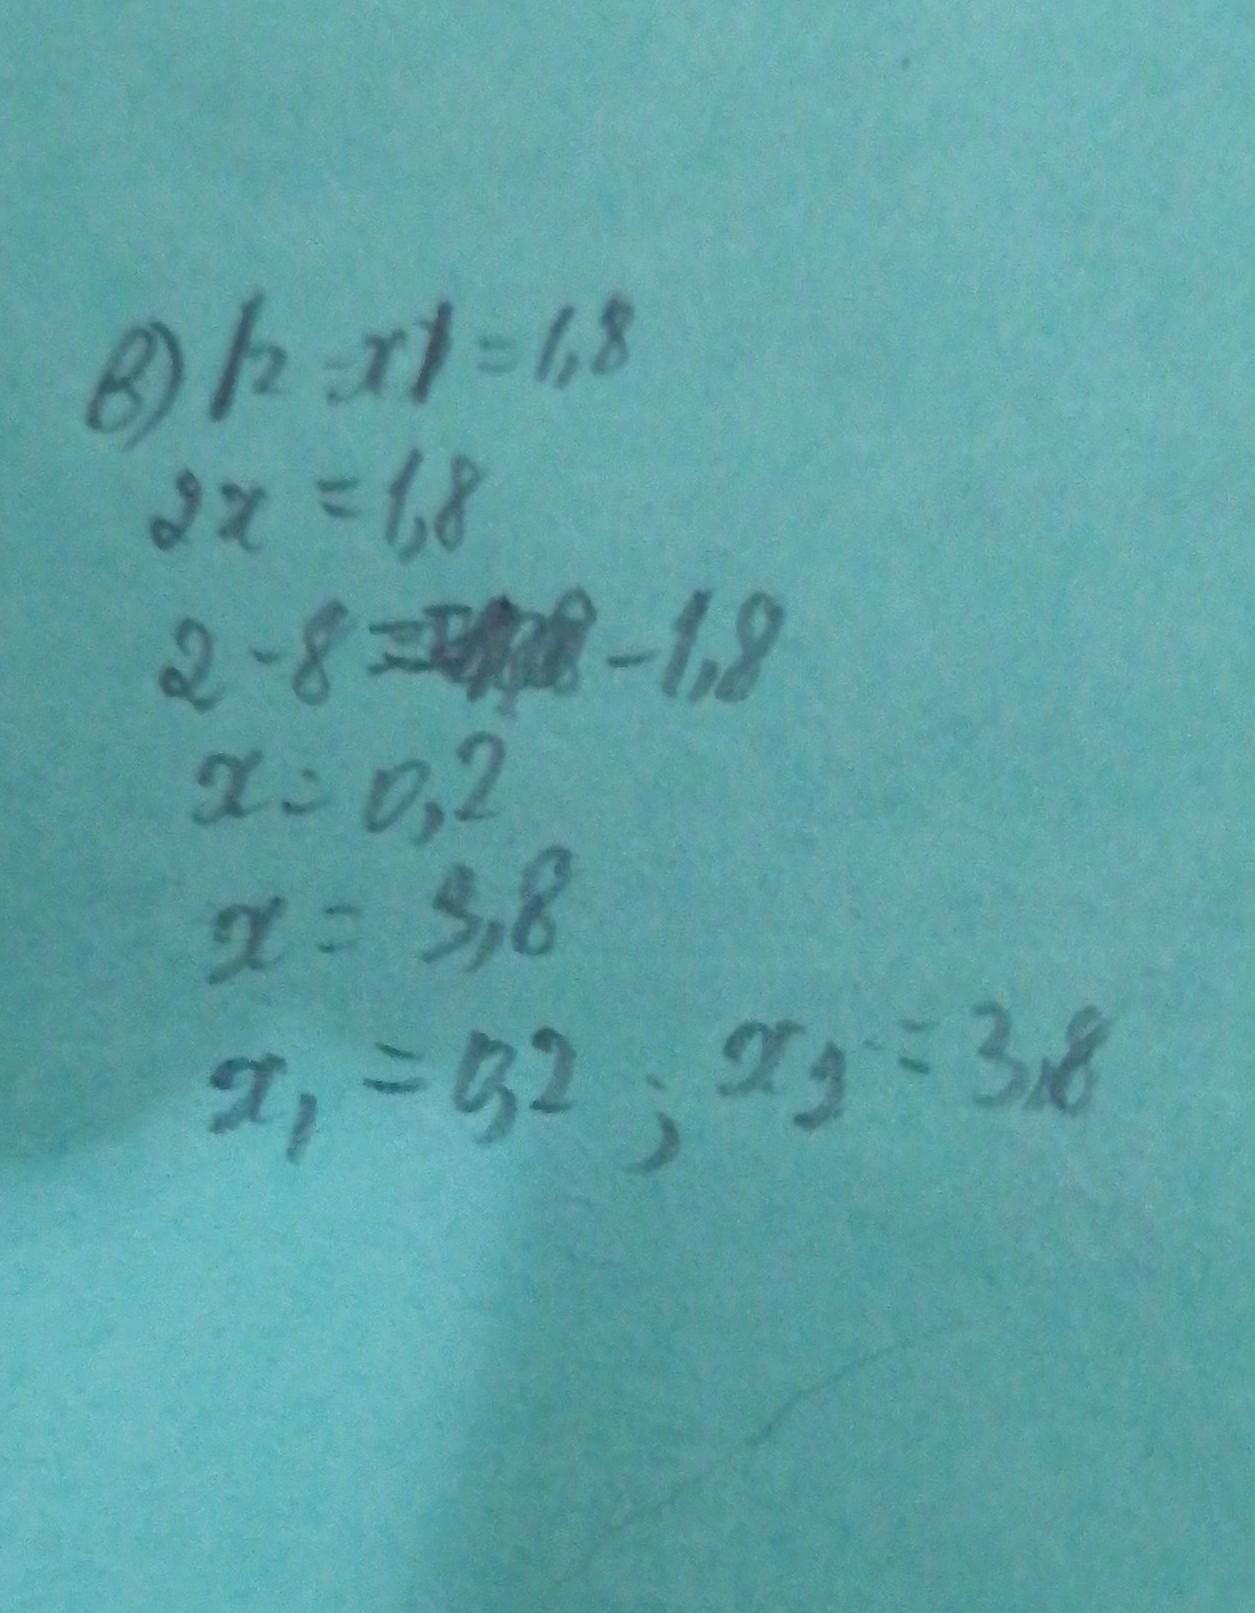 в) |2-x|=1,8
2x=1,8
2-8=-1,8
x=0,2
x=3,8
x₁=0,2; x₂=3,8